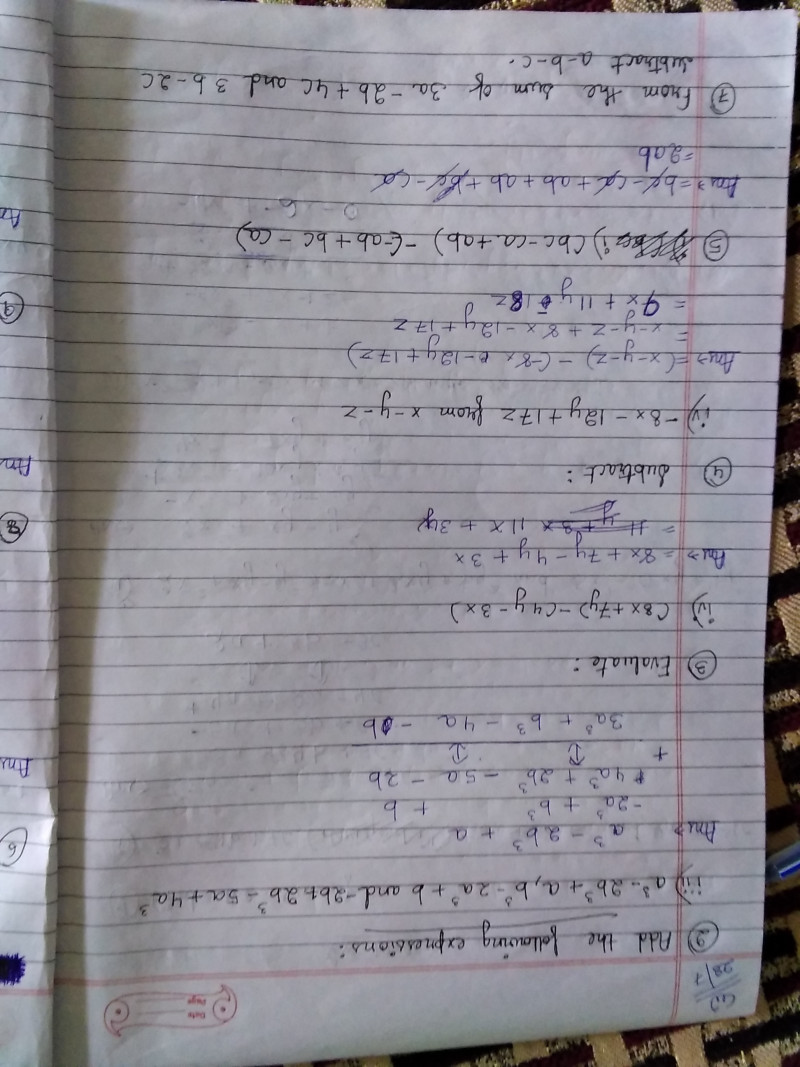 CW
28/7
Date
Page
② Add the following expressions:
iii) a³-2b³+a, b³-2a³+b and -2b+2b³-5a+4a³
Ans> a³ - 2b³ + a
-2a³ + b³ + b
+4a³ + 2b³ - 5a - 2b
+
3a³ + b³ - 4a - b
③ Evaluate:
iv) (8x+7y) - (4y-3x)
Ans> = 8x + 7y - 4y + 3x
= 11x + 3y
④ Subtract:
iv) -8x - 12y + 17z from x-y-z
Ans> = (x-y-z) - (-8x - 12y + 17z)
= x-y-z + 8x - 12y + 17z
= 9x + 11y - 18z
⑤ i) (bc-ca+ab) - (-ab+bc-ca)
Ans> = bc - ca + ab + ab + bc - ca
= 2ab
⑦ From the sum of 3a-2b+4c and 3b-2c
subtract a-b-c.
⑥
Ans
⑧
Ans
⑨
An